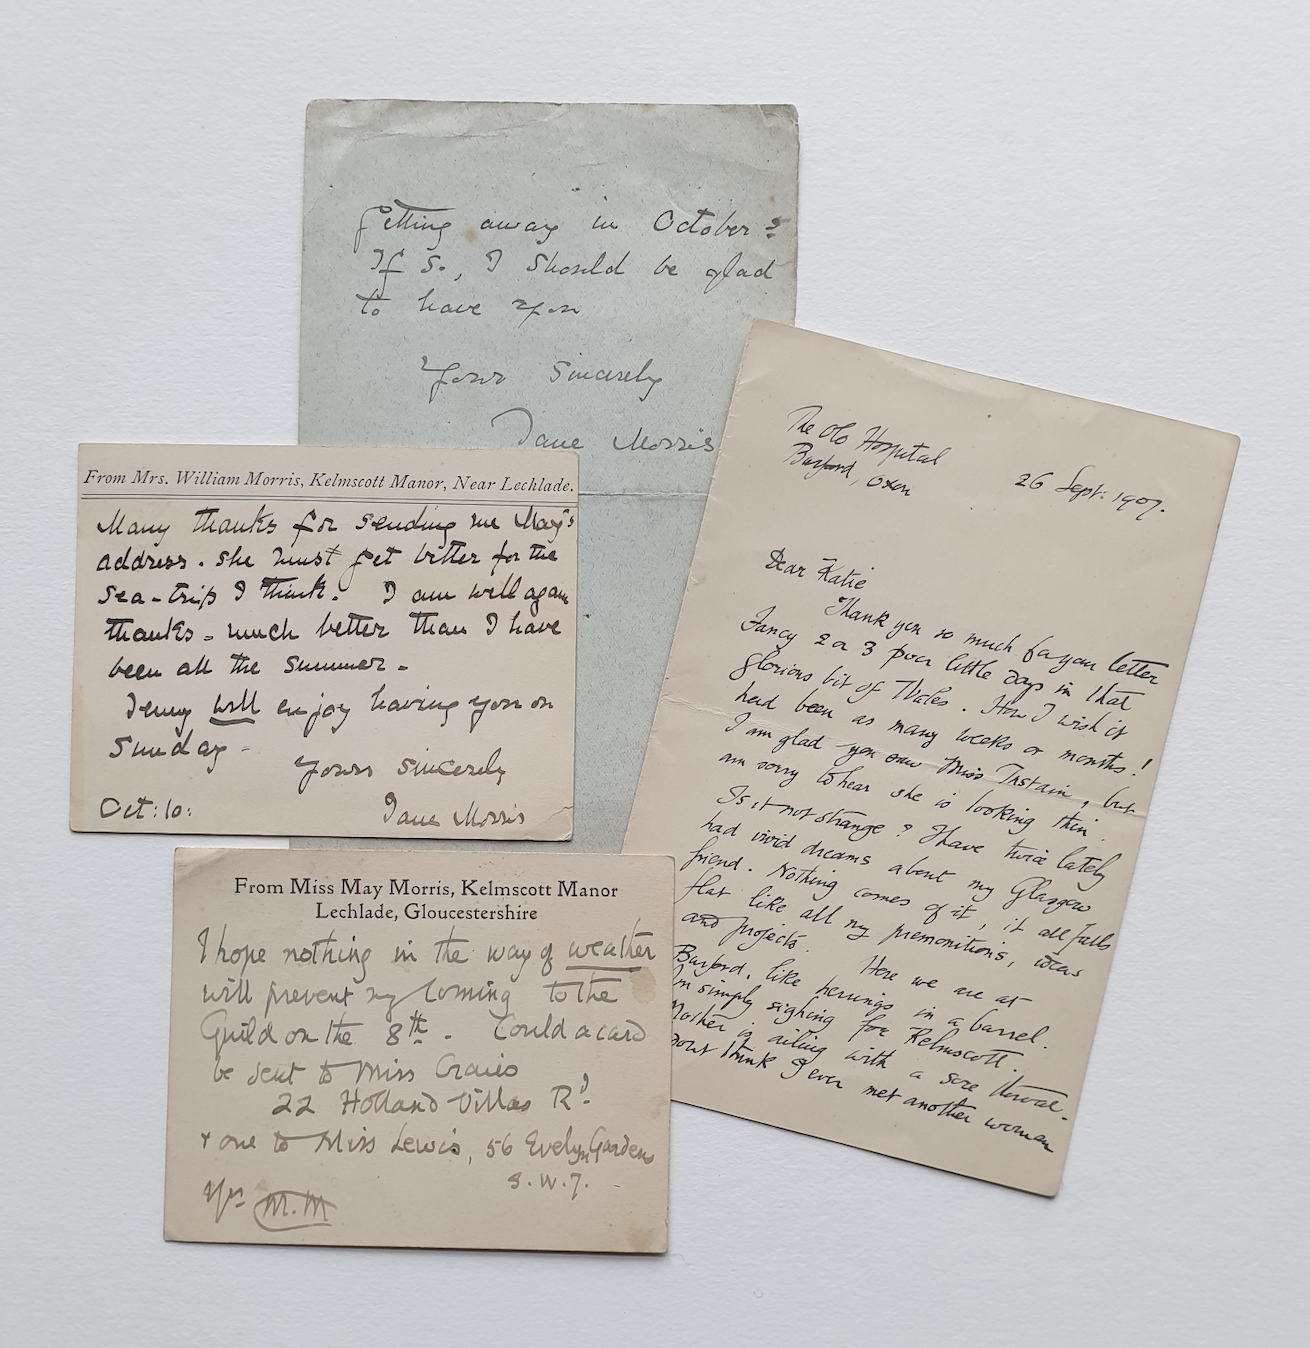 getting away in October?
If so, I should be glad
to have you
Yours sincerely
Jane Morris
From Mrs. William Morris, Kelmscott Manor, Near Lechlade.
Many thanks for sending me May's
address. She must get better for the
sea-trip I think. I am well again
thanks - much better than I have
been all the summer -
Jenny will enjoy having you on
Sunday -
Yours sincerely
Oct: 10: Jane Morris
From Miss May Morris, Kelmscott Manor
Lechlade, Gloucestershire
I hope nothing in the way of weather
will prevent my coming to the
Guild on the 8th. Could a card
be sent to Miss
22 Holland Villas Rd.
& one to Miss Lewis, 56 Evelyn Gardens
S.W.7.
Yrs M.M
The Old Hospital
Burford, Oxon
26 Sept: 1907.
Dear Katie
Thank you so much for your letter
Fancy 2 or 3 poor little days in that
glorious bit of Wales. How I wish it
had been as many weeks or months!
I am glad you saw Miss, but
am sorry to hear she is looking thin.
Is it not strange? I have twice lately
had vivid dreams about my Glasgow
friend. Nothing comes of it, it all falls
flat like all my premonitions, ideas
and projects.
Here we are at
Burford, like herrings in a barrel.
I'm simply sighing for Kelmscott.
Mother is ailing with a sore throat.
Dont think I ever met another woman